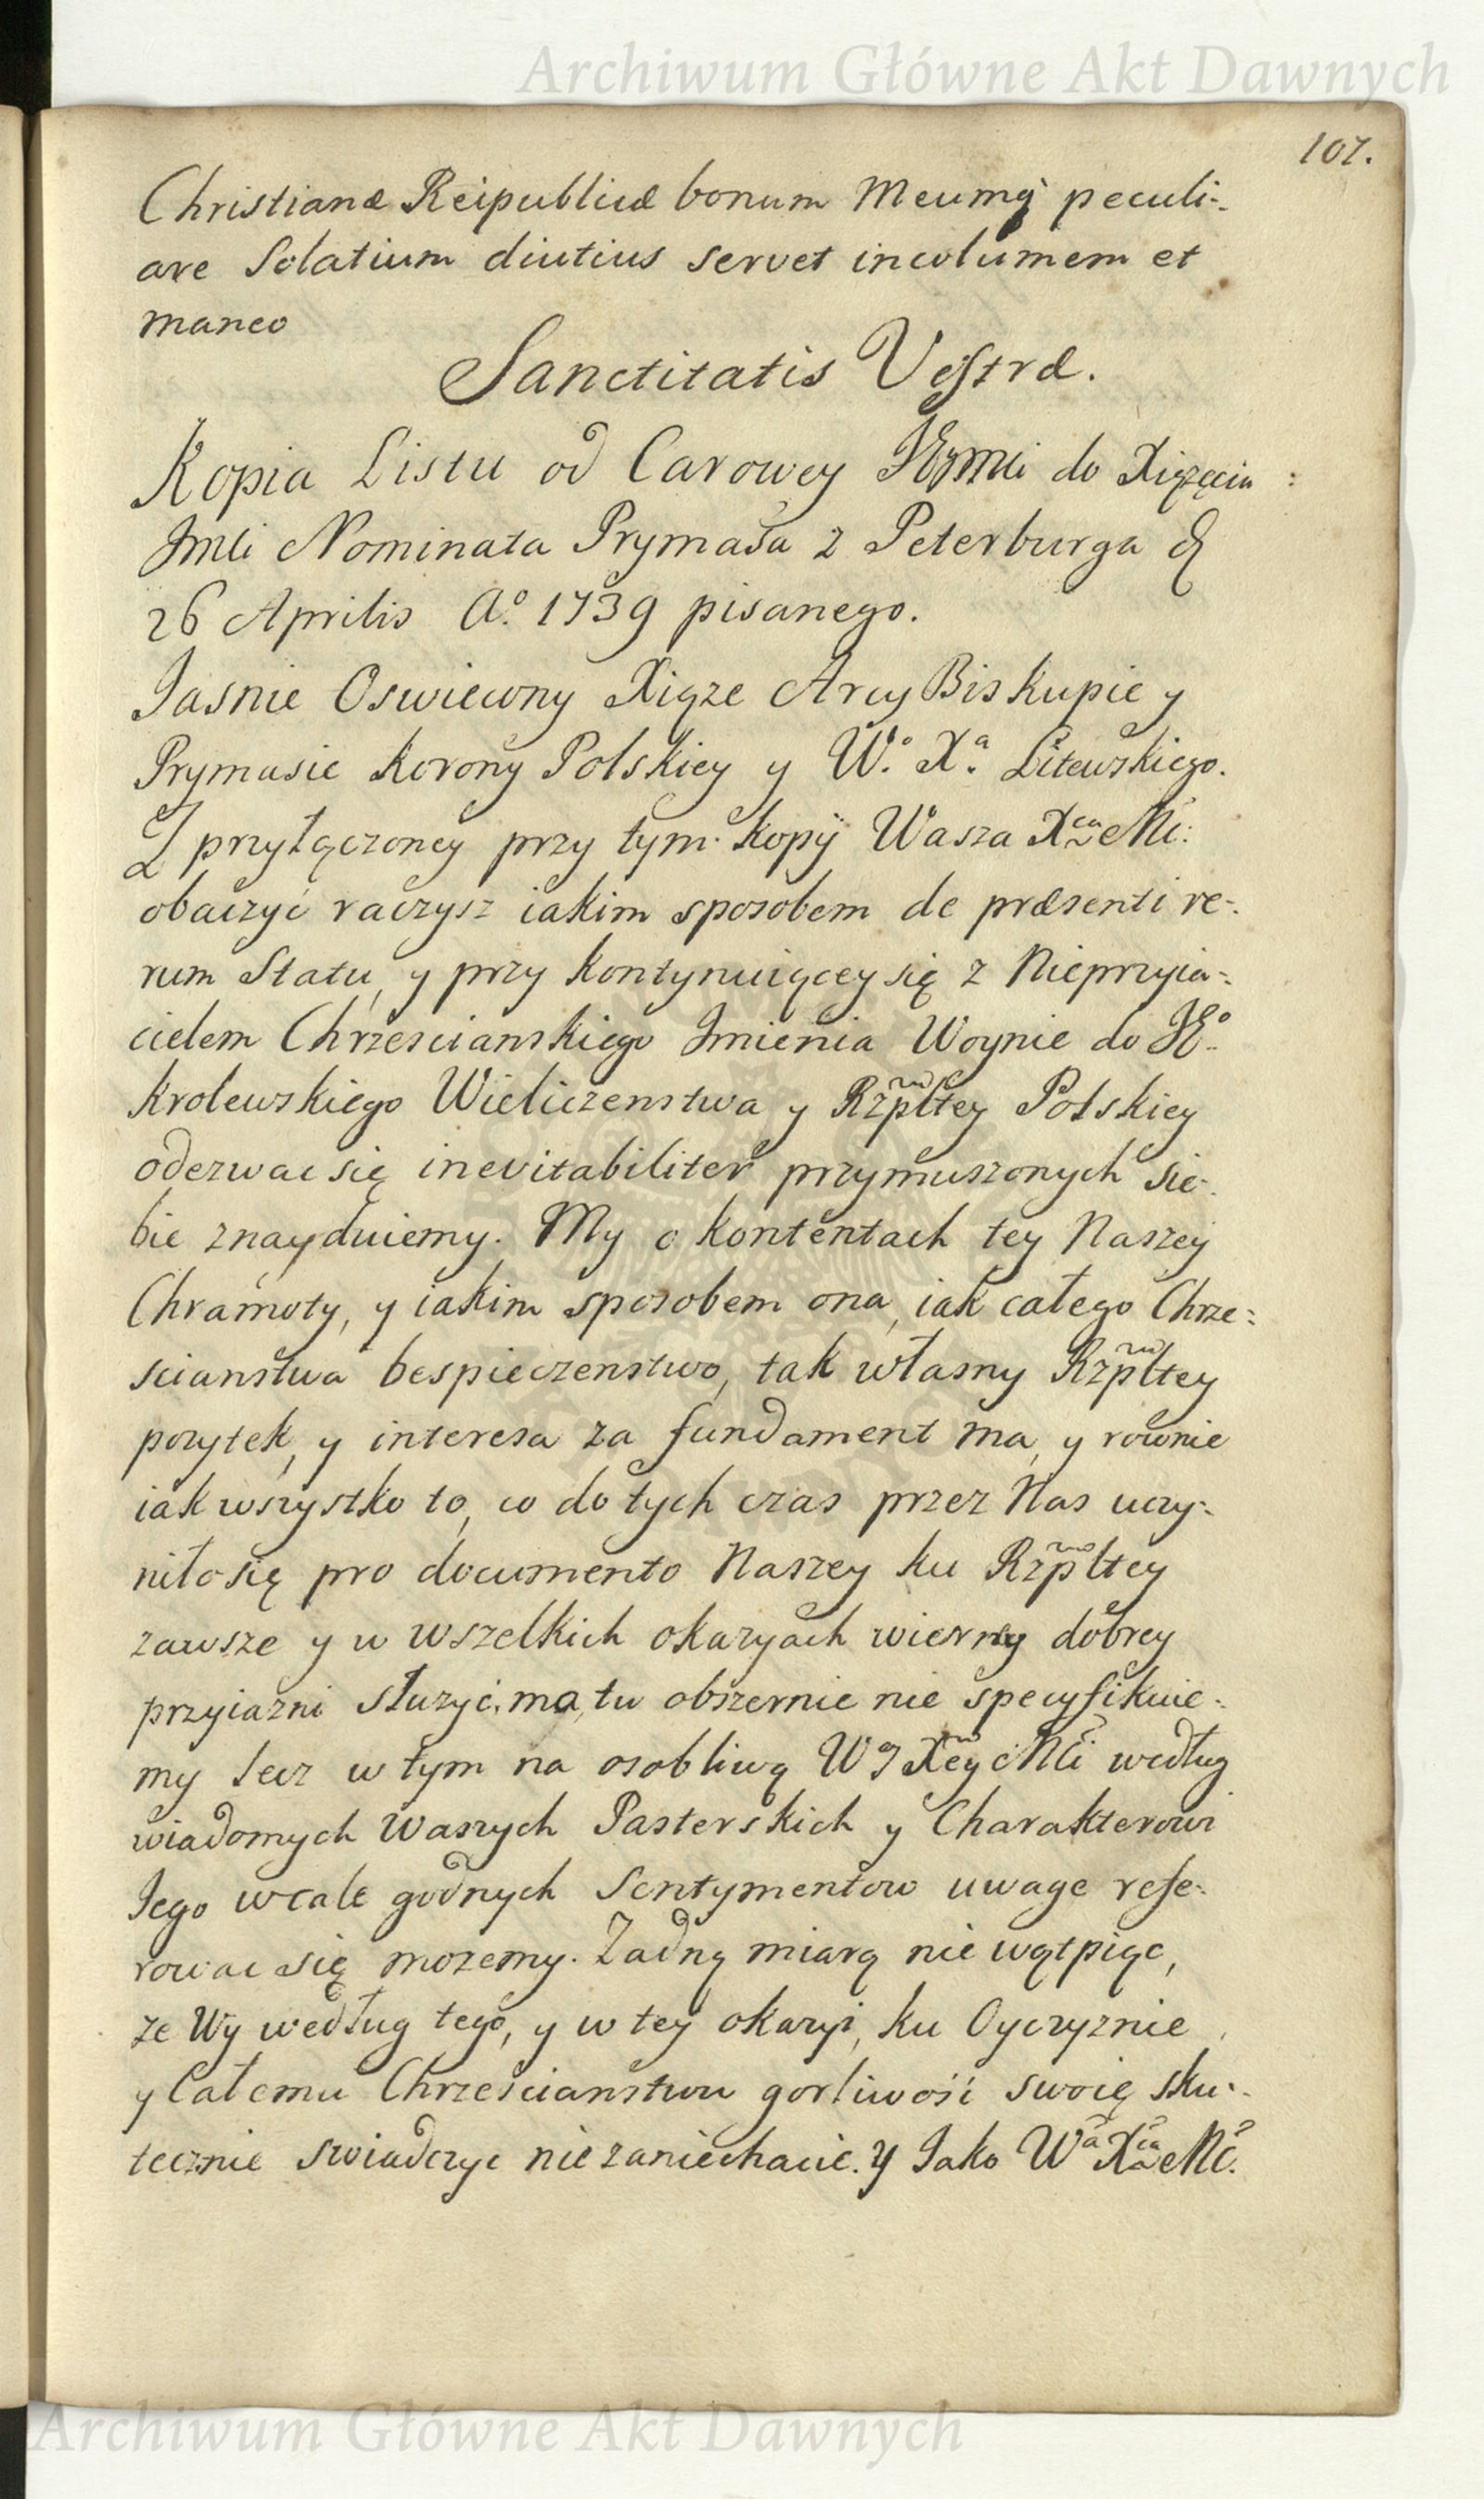 Archiwum Główne Akt Dawnych
107.
Christianæ Reipublicæ bonum Meumq́ peculi-
are Solatium diutius servet incolumem et
maneo
Sanctitatis Vestræ.
Kopia Listu od Carowey JEymci do Xiązęcia
Jmci Nominata Prymasa z Peterburga d
26 Aprilis Aº 1739 pisanego.
Jasnie Oswiecony Xiąze ArcyBiskupie y
Prymasie Korony Polskiey y Wº Xª Litewskiego.
Z przyłączoney przy tym kopij Wasza Xca Mć:
obaczyć raczysz iakim sposobem de præsenti re-
rum Statu, y przy kontynuiącey się z Nieprzyia-
cielem Chrzescianskiego Jmienia Woynie do JEº
Krolewskiego Wieliczenstwa y Rzpltey Polskiey
odezwac się inevitabiliter przymuszonych sie-
bie znayduiemy. My o kontentach tey Naszey
Chramoty, y iakim sposobem ona, iak całego Chrze-
scianstwa bespieczenstwo, tak własny Rzpltey
pozytek, y interesa za fundament ma, y rownie
iak wszystko to, co do tych czas przez Nas uczy-
niło się pro documento Naszey ku Rzpltey
zawsze y w wszelkich okazyach wierney dobrey
przyiazni słuzyć ma, tu obszernie nie specyfikuie-
my lecz w tym na osobliwą Wy Xcey Mći według
wiadomych Waszych Pasterskich y Charakterowi
Jego wcale godnych Sentymentow uwage refe-
rowac się mozemy. Zadną miarą nie wątpiąc,
ze Wy według tego, y w tey okazyi, ku Oyczyznie
y Całemu Chrzescianstwu gorliwość swoię sku-
tecznie swiadczyc nie zaniechacie. Y Jako Wª Xca Mć.
Archiwum Główne Akt Dawnych